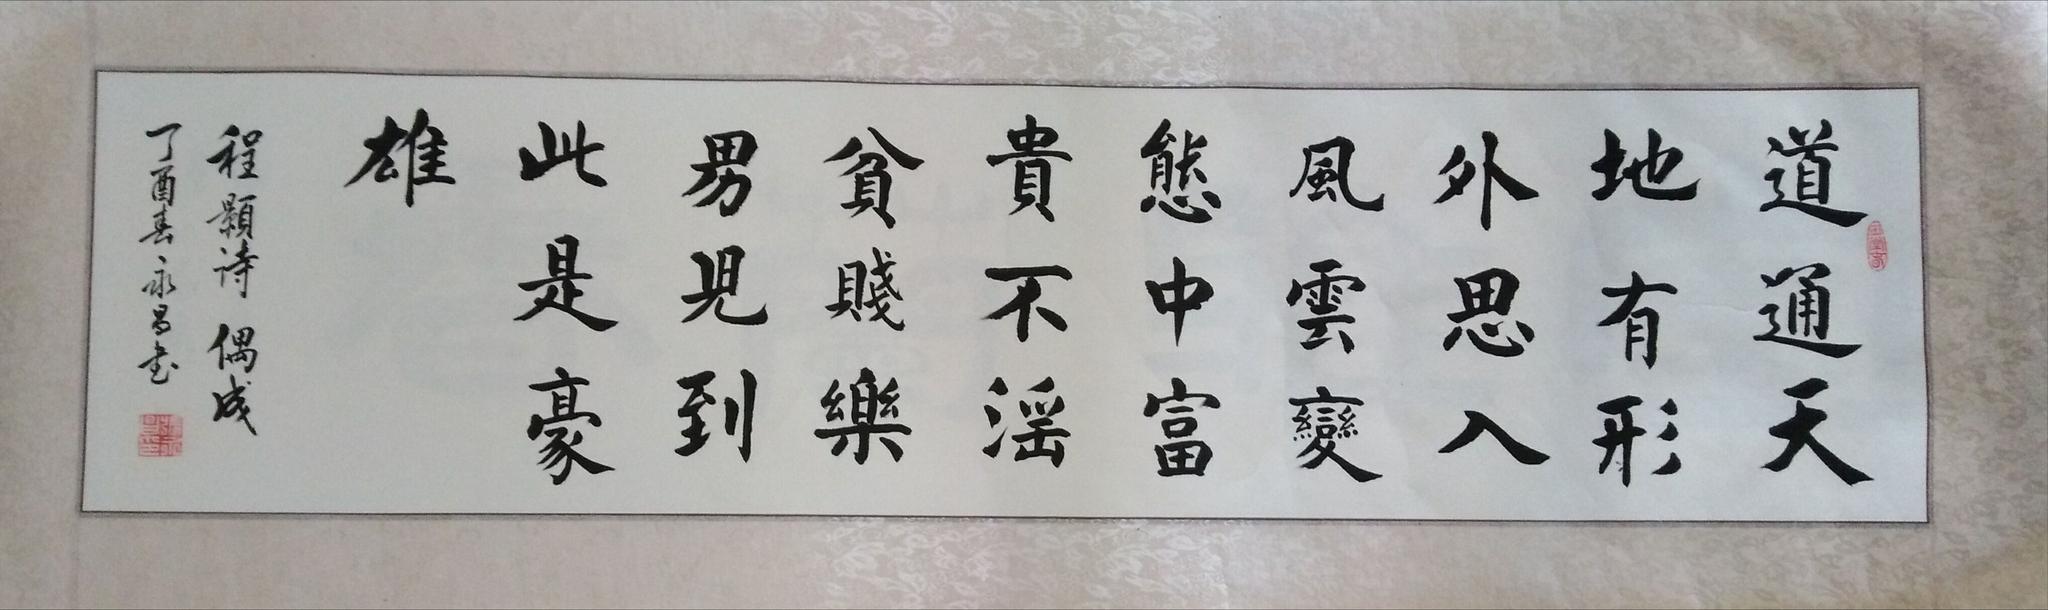 道通天
地有形
外思入
風雲變
態中富
貴不滛
貧賤樂
男児到
此是豪
雄
程顥诗 偶成
丁酉春 永昌书